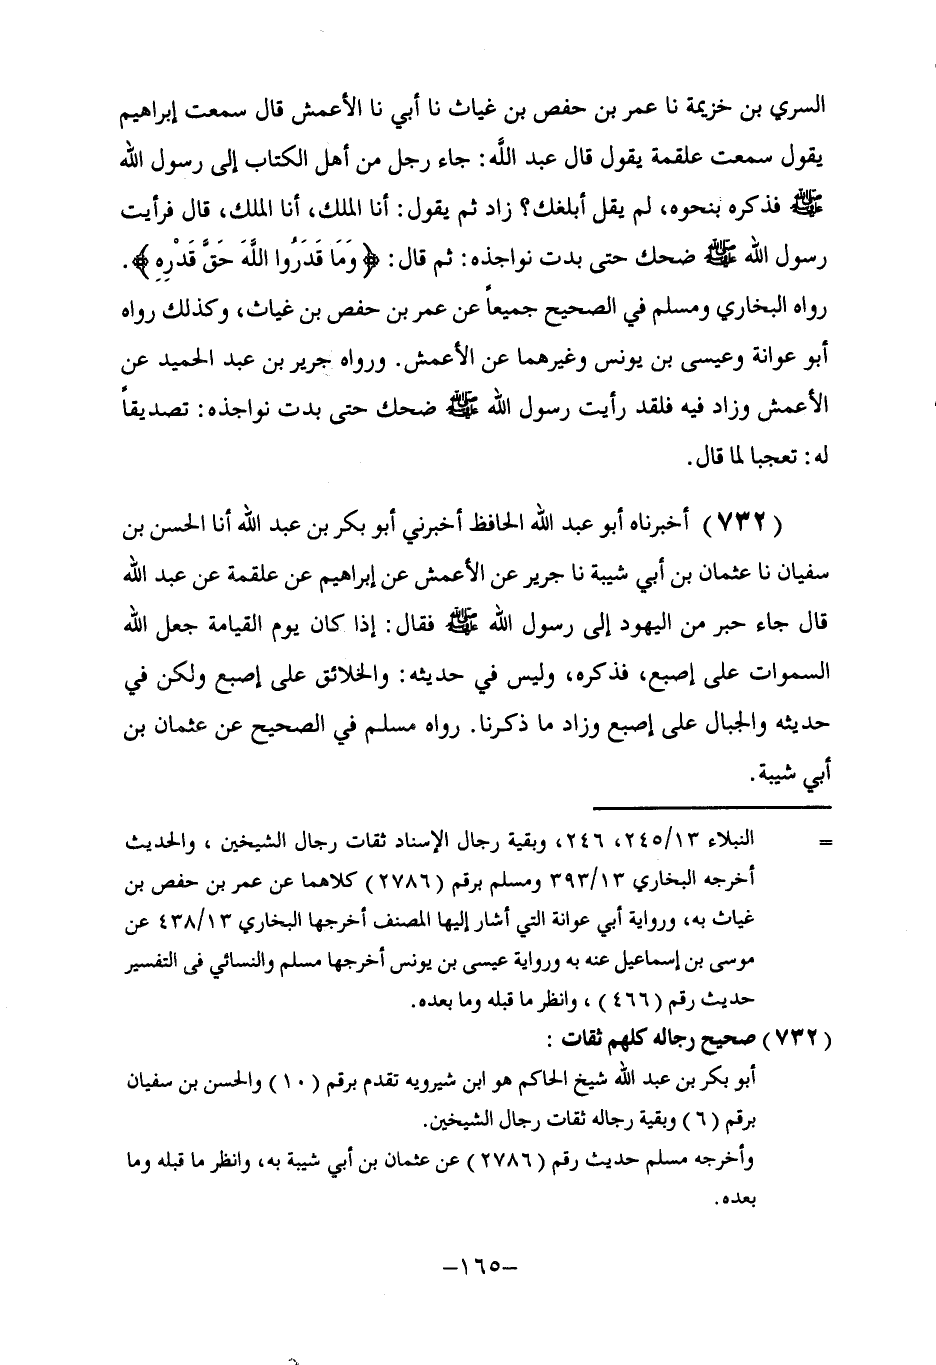 السري بن خزيمة نا عمر بن حفص بن غياث نا أبي نا الأعمش قال سمعت إبراهيم
يقول سمعت علقمة يقول قال عبد اللَّه: جاء رجل من أهل الكتاب إلى رسول الله
ﷺ فذكره بنحوه، لم يقل أبلغك؟ زاد ثم يقول: أنا الملك، أنا الملك، قال فرأيت
رسول الله ﷺ ضحك حتى بدت نواجذه: ثم قال: ﴿وَمَا قَدَرُوا اللَّهَ حَقَّ قَدْرِهِ﴾.
رواه البخاري ومسلم في الصحيح جميعاً عن عمر بن حفص بن غياث، وكذلك رواه
أبو عوانة وعيسى بن يونس وغيرهما عن الأعمش. ورواه جرير بن عبد الحميد عن
الأعمش وزاد فيه فلقد رأيت رسول الله ﷺ ضحك حتى بدت نواجذه: تصديقاً
له: تعجبا لما قال.
(٧٣٢) أخبرناه أبو عبد الله الحافظ أخبرني أبو بكر بن عبد الله أنا الحسن بن
سفيان نا عثمان بن أبي شيبة نا جرير عن الأعمش عن إبراهيم عن علقمة عن عبد الله
قال جاء حبر من اليهود إلى رسول الله ﷺ فقال: إذا كان يوم القيامة جعل الله
السموات على إصبع، فذكره، وليس في حديثه: والخلائق على إصبع ولكن في
حديثه والجبال على إصبع وزاد ما ذكرنا. رواه مسلم في الصحيح عن عثمان بن
أبي شيبة.
= النبلاء ٢٤٥/١٣، ٢٤٦، وبقية رجال الإسناد ثقات رجال الشيخين ، والحديث
أخرجه البخاري ٣٩٣/١٣ ومسلم برقم (٢٧٨٦) كلاهما عن عمر بن حفص بن
غياث به، ورواية أبي عوانة التي أشار إليها المصنف أخرجها البخاري ٤٣٨/١٣ عن
موسى بن إسماعيل عنه به ورواية عيسى بن يونس أخرجها مسلم والنسائي فى التفسير
حديث رقم (٤٦٦) ، وانظر ما قبله وما بعده.
(٧٣٢) صحيح رجاله كلهم ثقات :
أبو بكر بن عبد الله شيخ الحاكم هو ابن شيرويه تقدم برقم (١٠) والحسن بن سفيان
برقم (٦) وبقية رجاله ثقات رجال الشيخين.
وأخرجه مسلم حديث رقم (٢٧٨٦) عن عثمان بن أبي شيبة به، وانظر ما قبله وما
بعده.
–١٦٥–